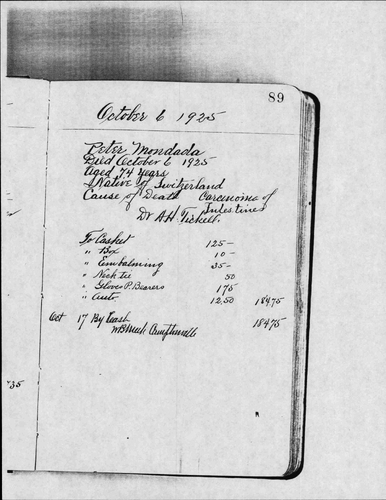 89
October 6 1925
Peter Mondada
Died October 6 1925
Aged 74 years
Native of Switzerland
Cause of Death Carcinoma of
Intestines
Dr A.H. Tickell.
To Casket 125 -
" Box 10 -
" Embalming 35 -
" Neck tie 50
" Gloves P. Bearers 175
" Auto. 12.50 184 75
Oct 17 By Cash 184 75
35